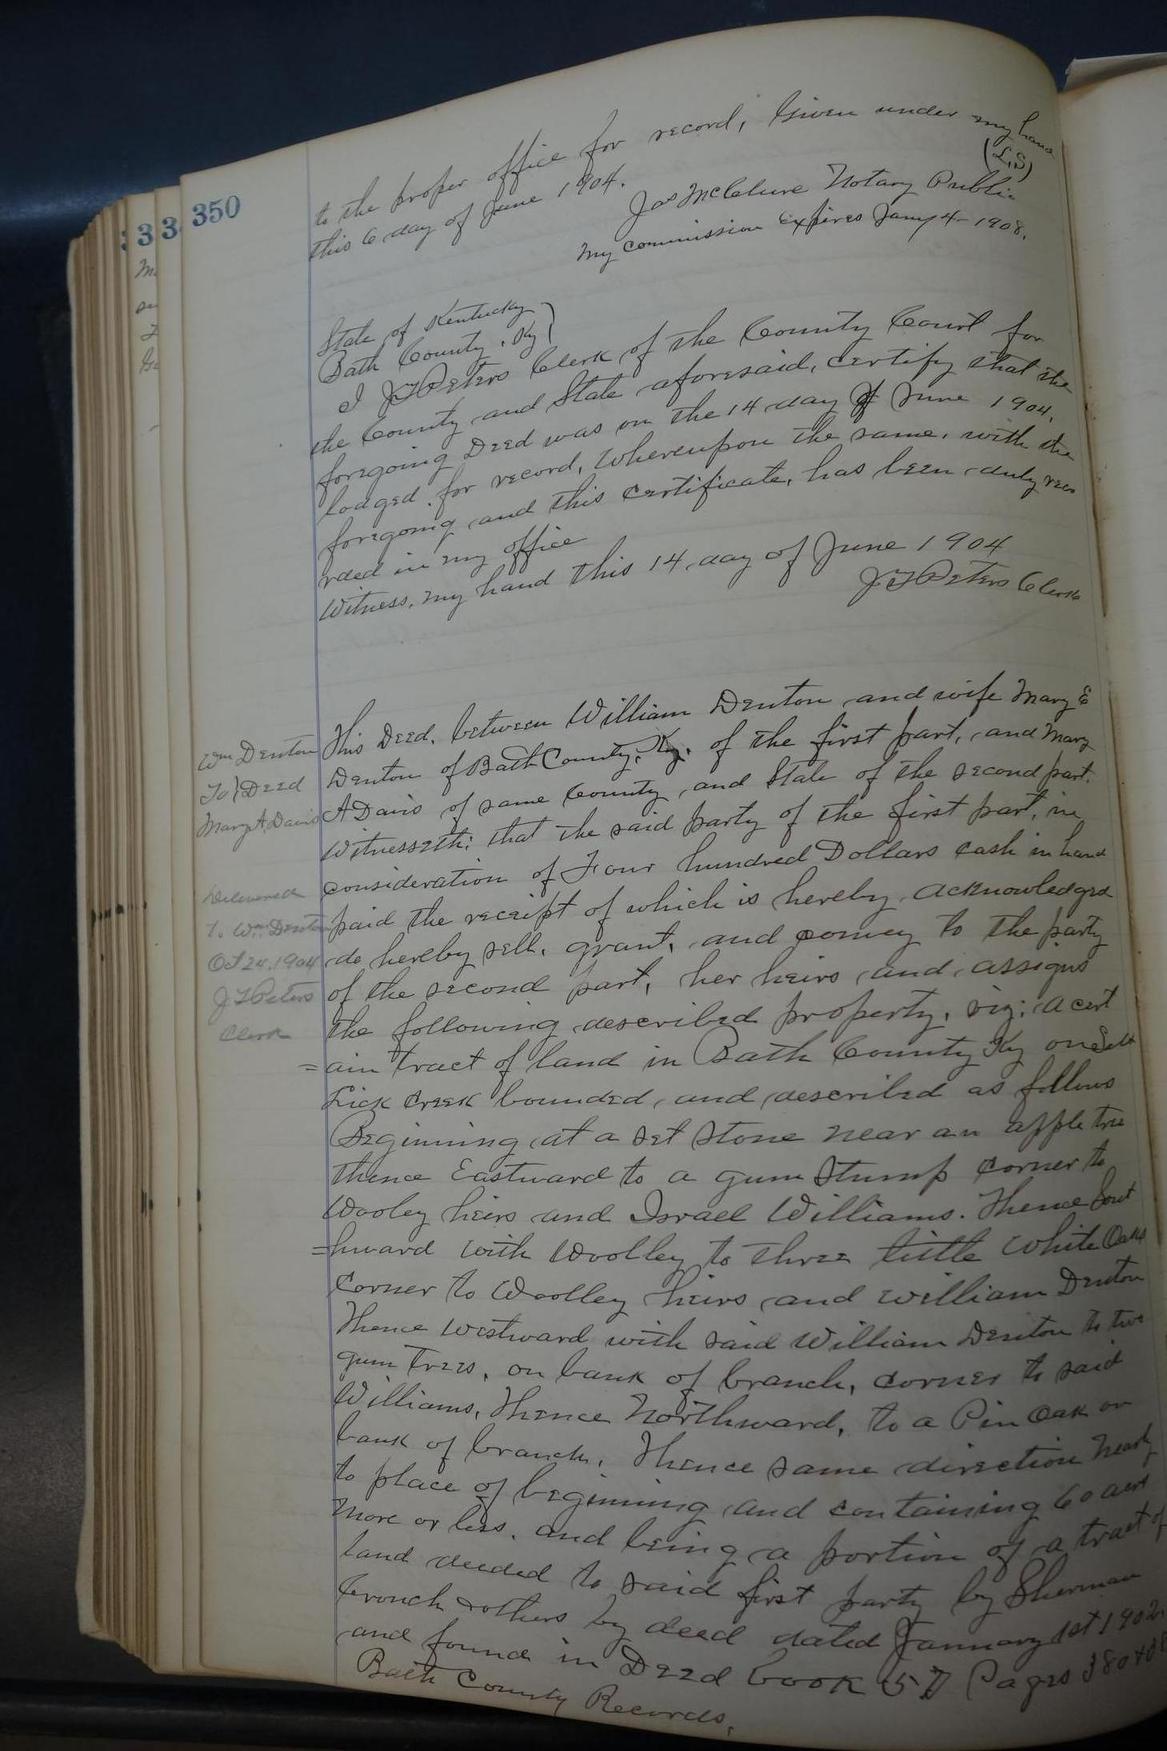 350
to the proper office for record, Given under my hand
this 6 day of June 1904.
(L.S)
Jas McClure Notary Public
my commission Expires Jany 4- 1908.
State of Kentucky
Bath County, Ky
I J T Peters Clerk of the County Court for
the County and State aforesaid, certify that the
foregoing Deed was on the 14 day of June 1904,
lodged for record, Whereupon the same, with the
foregoing and this certificate, has been duly reco
rded in my office
Witness, my hand this 14 day of June 1904
J T Peters Clerk
Wm Denton
To } Deed
Mary A. Davis
Delivered
To Wm Denton
Oct 24, 1904
J T Peters
Clerk
This Deed, between William Denton and wife Mary E
Denton of Bath County, Ky. of the first part, and Mary
A Davis of same County and State of the second part.
Witnesseth: that the said party of the first part, in
consideration of Four hundred Dollars cash in hand
paid the receipt of which is hereby acknowledged
do hereby sell, grant, and convey to the party
of the second part, her heirs and assigns
the following described property, viz: a cert
=ain tract of land in Bath County Ky on Salt
Lick Creek bounded and described as follows
Beginning at a set stone near an apple tree
thence Eastward to a gum Stump corner to
Wooley heirs and Israel Williams. Thence Sout
=hward with Woolley to three little White Oaks
corner to Woolley heirs and William Denton
Thence westward with said William Denton to two
gum trees, on bank of branch, corner to said
Williams, Thence Northward, to a Pin Oak on
bank of branch. Thence same direction nearly
to place of beginning and containing 60 acres
more or less, and being a portion of a tract of
land deeded to said first party by Sherman
Crouch & others by deed dated January 1st 1902
and found in Deed book 57 Pages 380
Bath County Records,